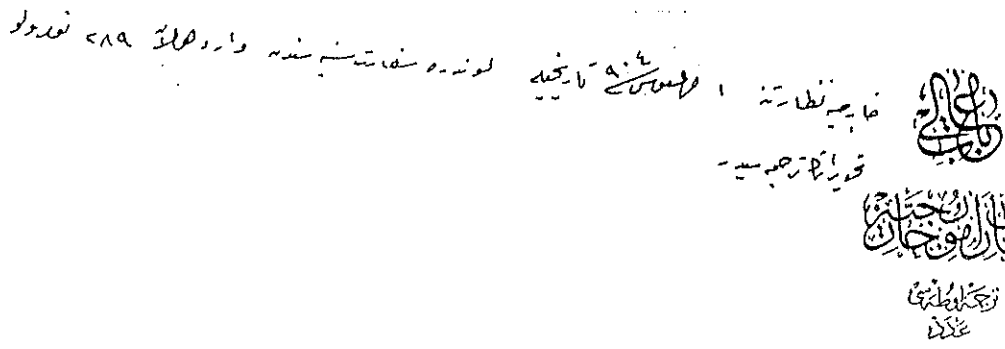 باب عالی
دائره خارجیه
ترجمه اوطه سی
عدد
خارجیه نظارتنه ١ اغستوس ٩٠٤ تاریخیله لوندره سفارت سنیه سندن وارد اولان ٢٨٩ نومرولو
تحریراتك ترجمه سیدر